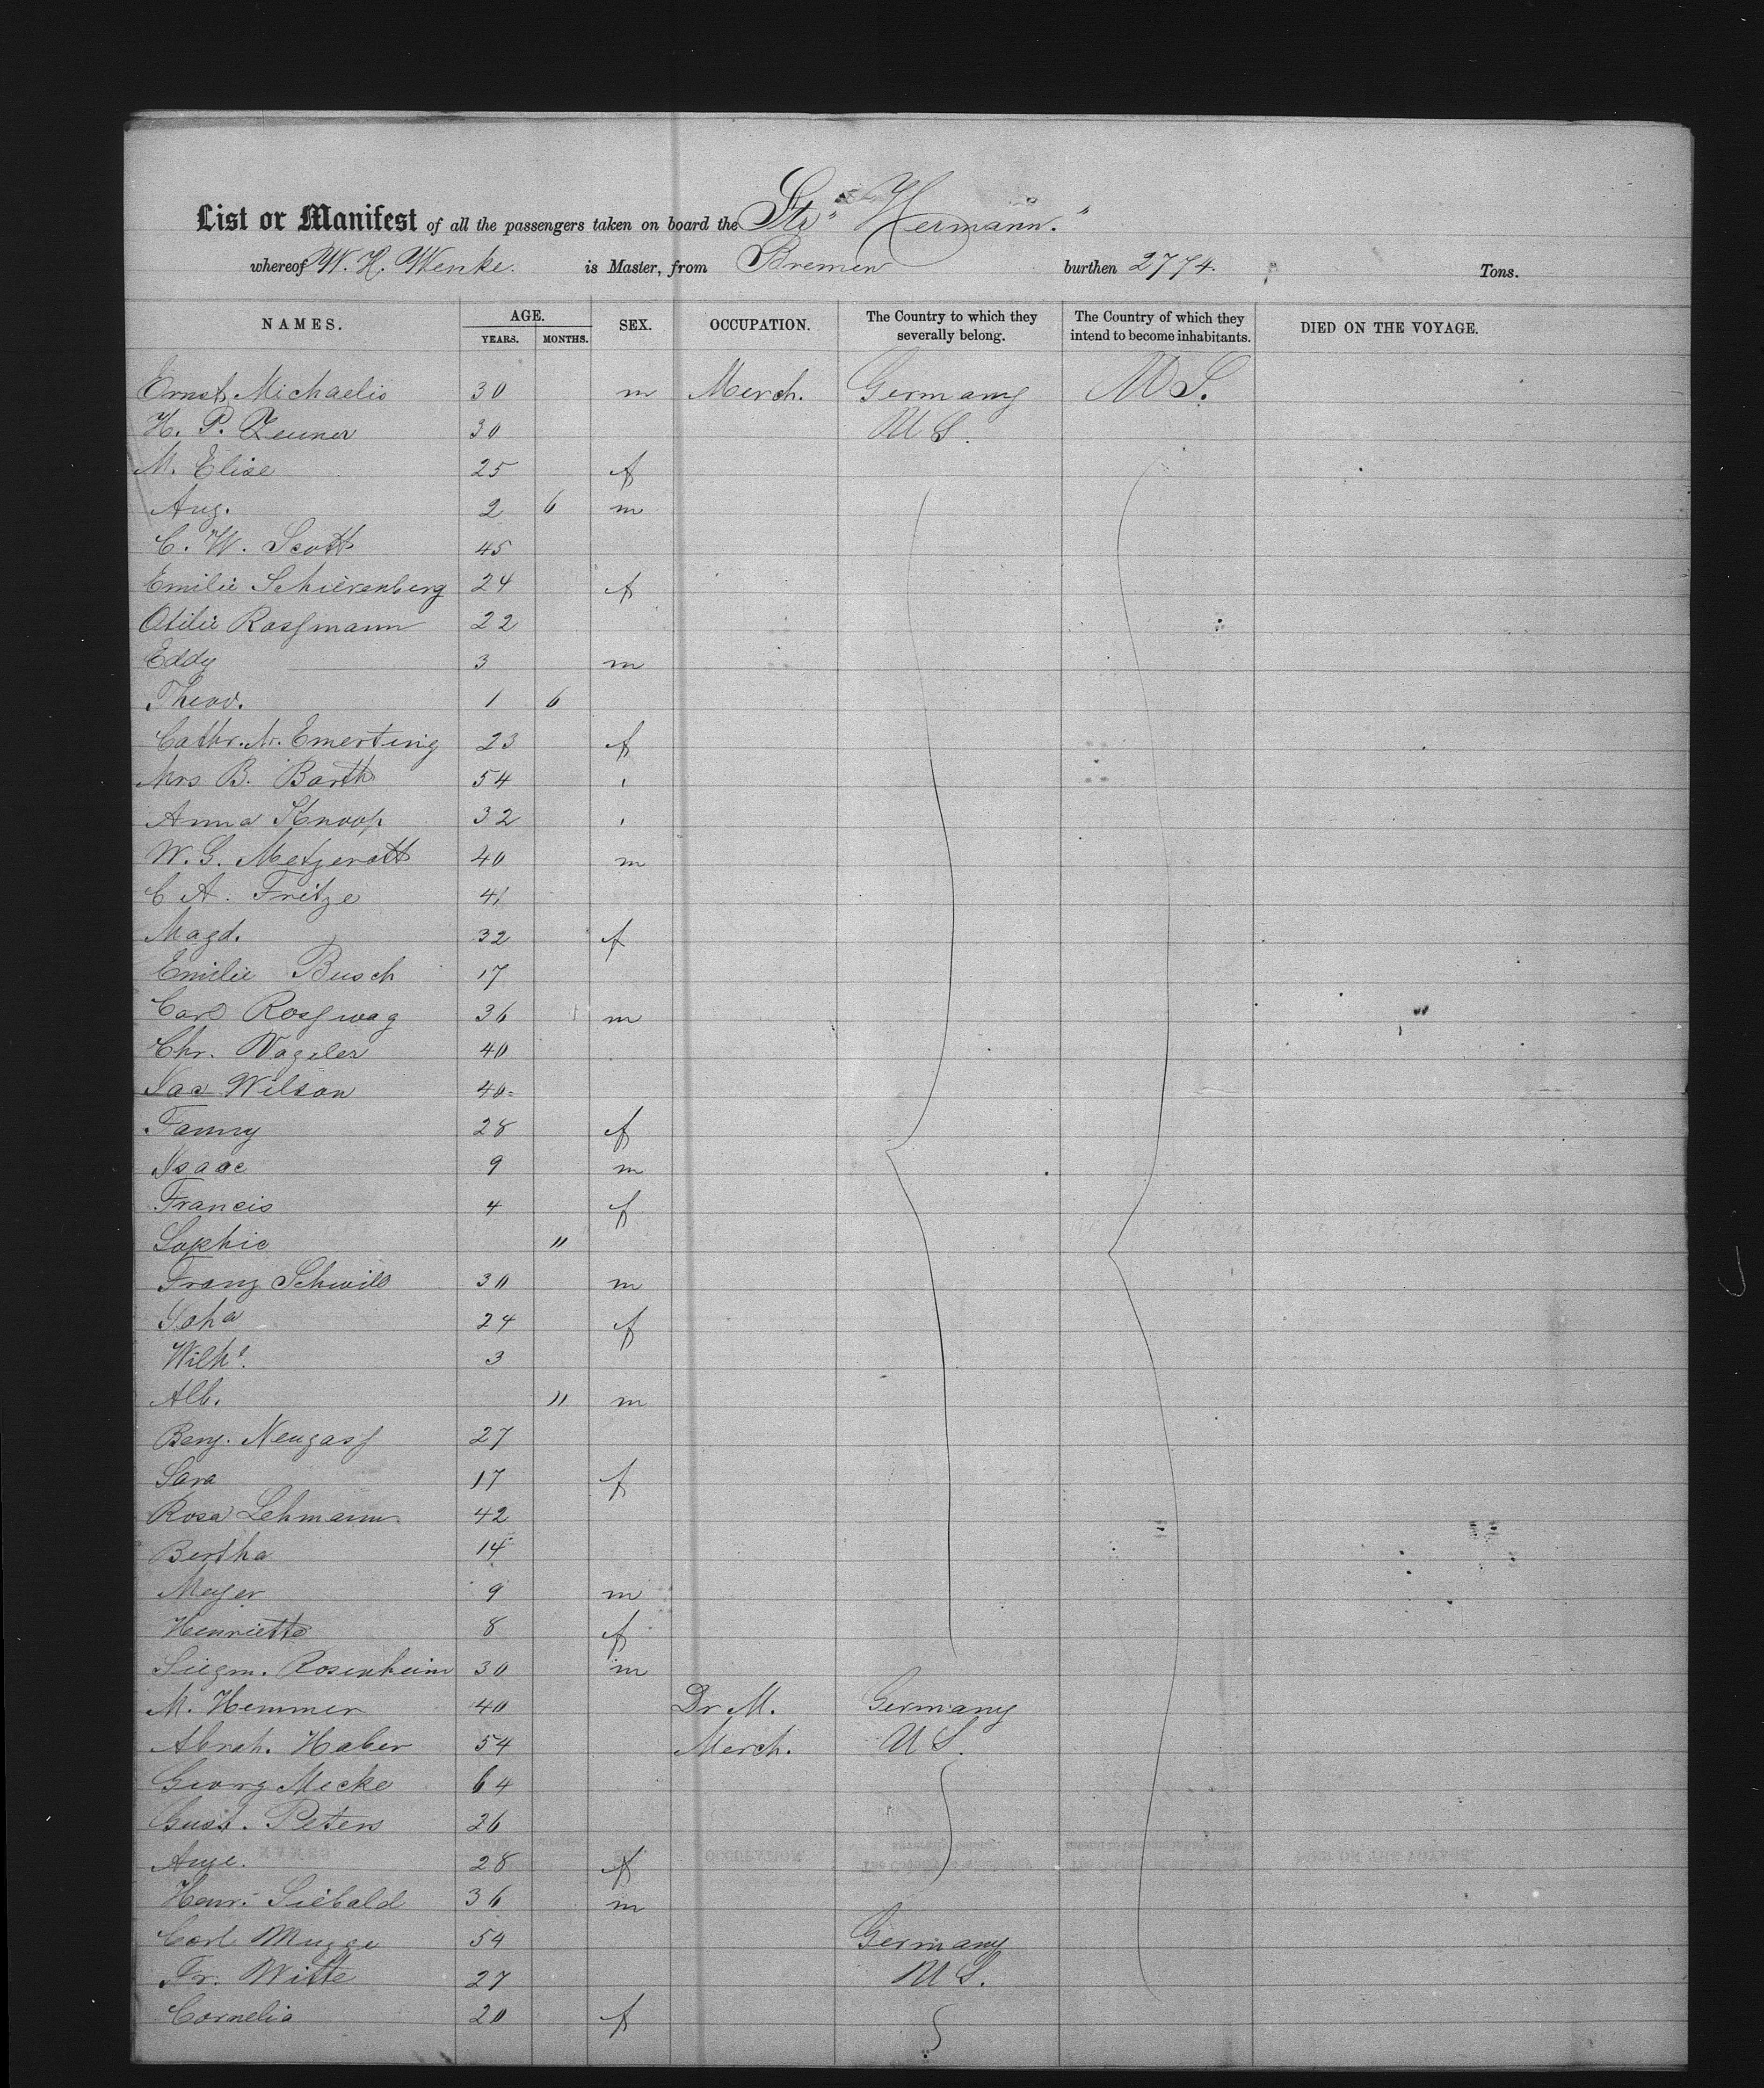 List or Manifest of all the passengers taken on board the Str "Hermann."
whereof W. H. Wenke. is Master, from Bremen burthen 2774. Tons.
NAMES. AGE. YEARS. MONTHS. SEX. OCCUPATION. The Country to which they severally belong. The Country of which they intend to become inhabitants. DIED ON THE VOYAGE.
Ernst Michaelis 30 m Merch. Germany U S.
H. P. Zeuner 30 U S.
M. Elise 25 f
Aug. 2 6 m
C. W. Scott 45
Emilie Schierenberg 24 f
Otilie Rossmann 22
Eddy 3 m
Theod. 1 6
Cathr. M. Emerting 23 f
Mrs B. Barth 54 "
Anna Knoop 32 "
W. G. Metzerott 40 m
C A. Fritze 41
Magd. 32 f
Emilie Busch 17
Carl Rosswag 36 m
Chr. Vageler 40
Jas Wilson 40
Fanny 28 f
Isaac 9 m
Francis 4 f
Sophie 11
Franz Schwill 30 m
Joha 24 f
Wilhe. 3
Alb. 11 m
Benj. Neugass 27
Sara 17 f
Rosa Lehmann 42
Bertha 14
Meyer 9 m
Henriette 8 f
Siegm. Rosenheim 30 m
M. Hemmer 40 Dr M. Germany
Abrah. Haber 54 Merch. U S.
Georg Mecke 64
Gust. Peters 26
Auge. 28 f
Henr. Siebald 36 m
Carl Mugge 54 Germany
Fr. Witte 27 U S.
Cornelia 20 f